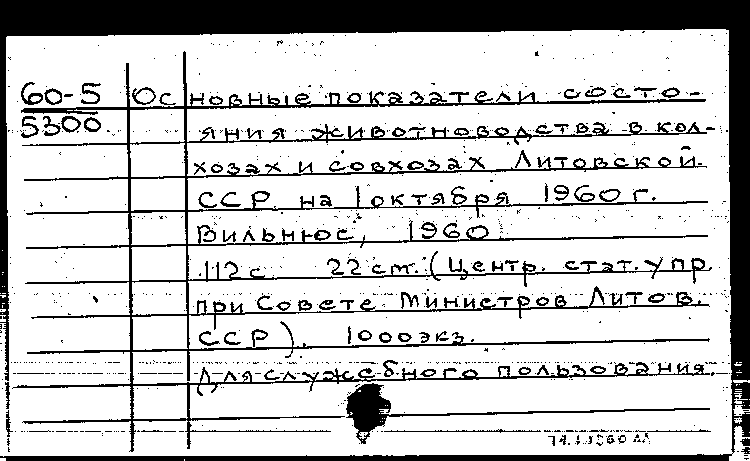 60-5 Основные показатели состо-
5300 яния животноводства в кол-
хозах и совхозах Литовской
ССР на 1 октября 1960 г.
Вильнюс, 1960
112 с 22 см. (Центр. стат. упр.
при Совете Министров Литов.
ССР). 1000 экз.
Для служебного пользования.